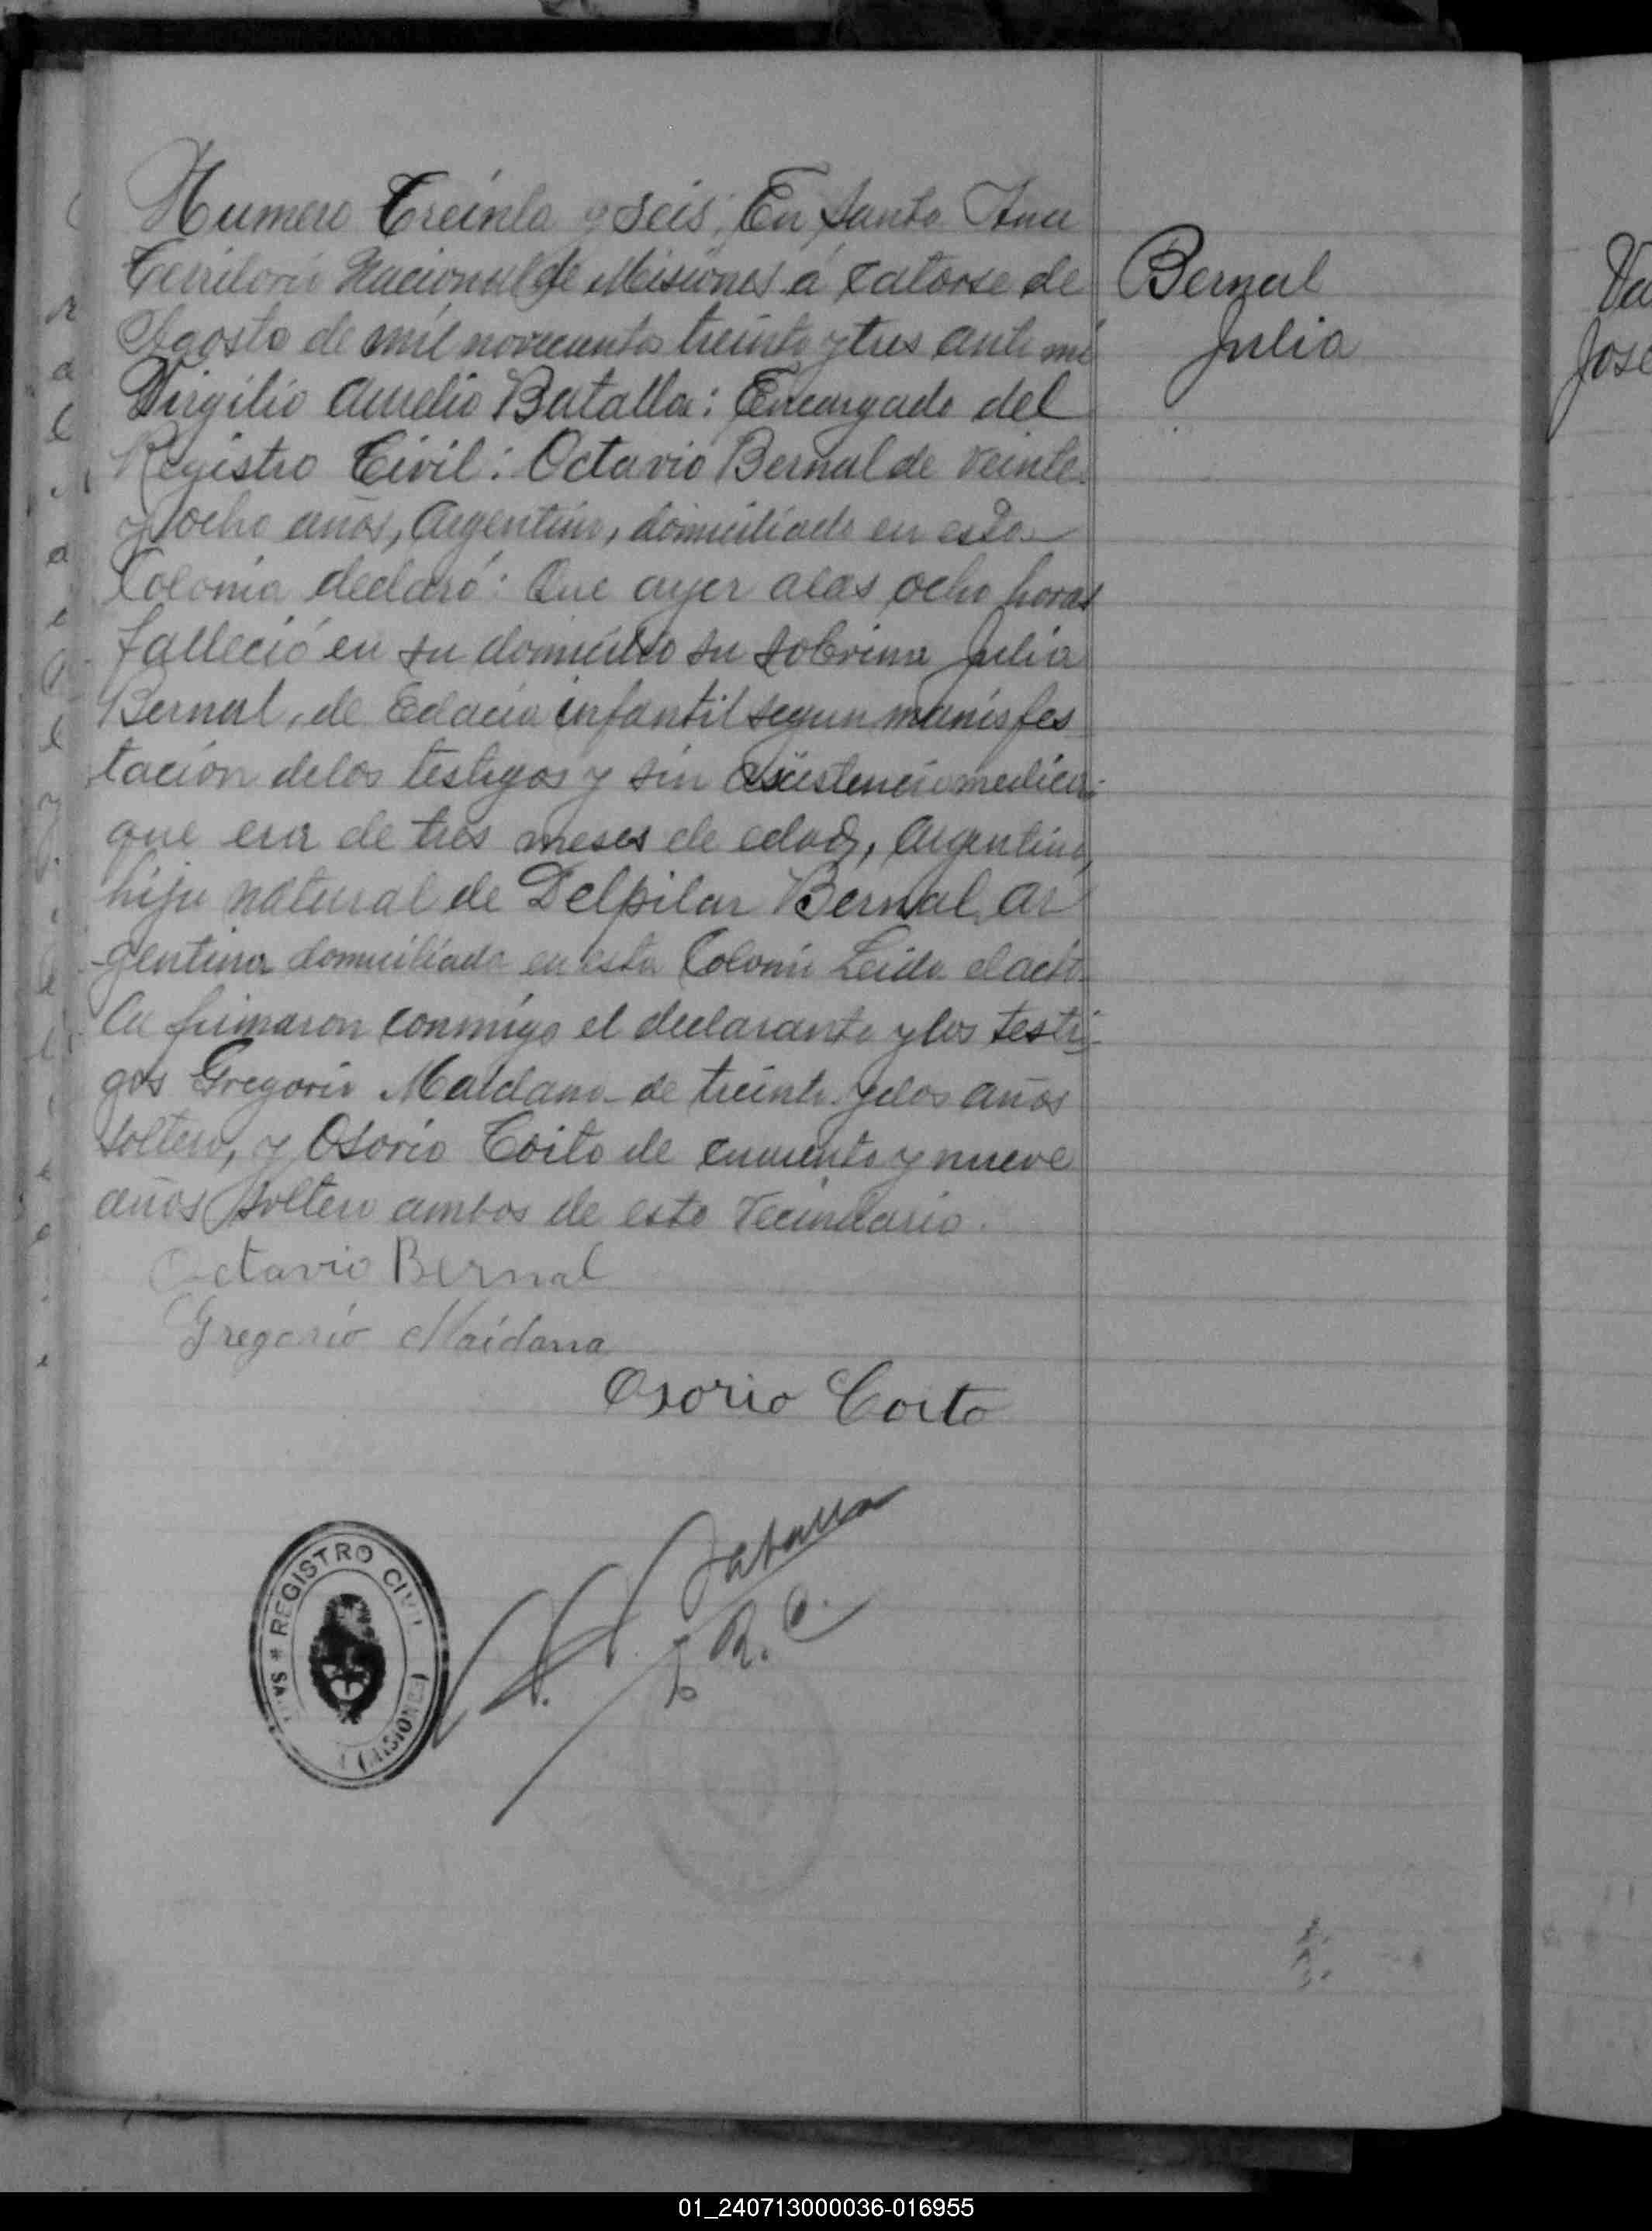 Numero Treinta y Seis; En Santa Ana
Territorio Nacional de Misiones á catorse de
Agosto de mil novecientos treinta y tres ante mí
Virgilio Aurelio Batalla: Encargado del
Registro Civil: Octavio Bernal de veinte
y ocho años, Argentino, domiciliado en esta
Colonia declaró: Que ayer a las ocho horas
falleció en su domicilio su sobrina Julia
Bernal, de infantil segun manisfes
tación de los testigos y sin asistencia medica:
que era de tres meses de edad, Argentina,
hija natural de Delpilar Bernal, Ar
gentina domiciliada en esta Colonia Leida el acta
La firmaron conmigo el declarante y los testi-
gos Gregorio Maidana de treinta y dos años
soltero, y Osorio Coito de cuarenta y nueve
años soltero ambos de este Vecindario.
Octavio Bernal
Gregorio Maidana
Osorio Coito
Batalla
E. R. C.
REGISTRO CIVIL
(MISIONES)
Bernal
Julia
Jose
01_240713000036-016955